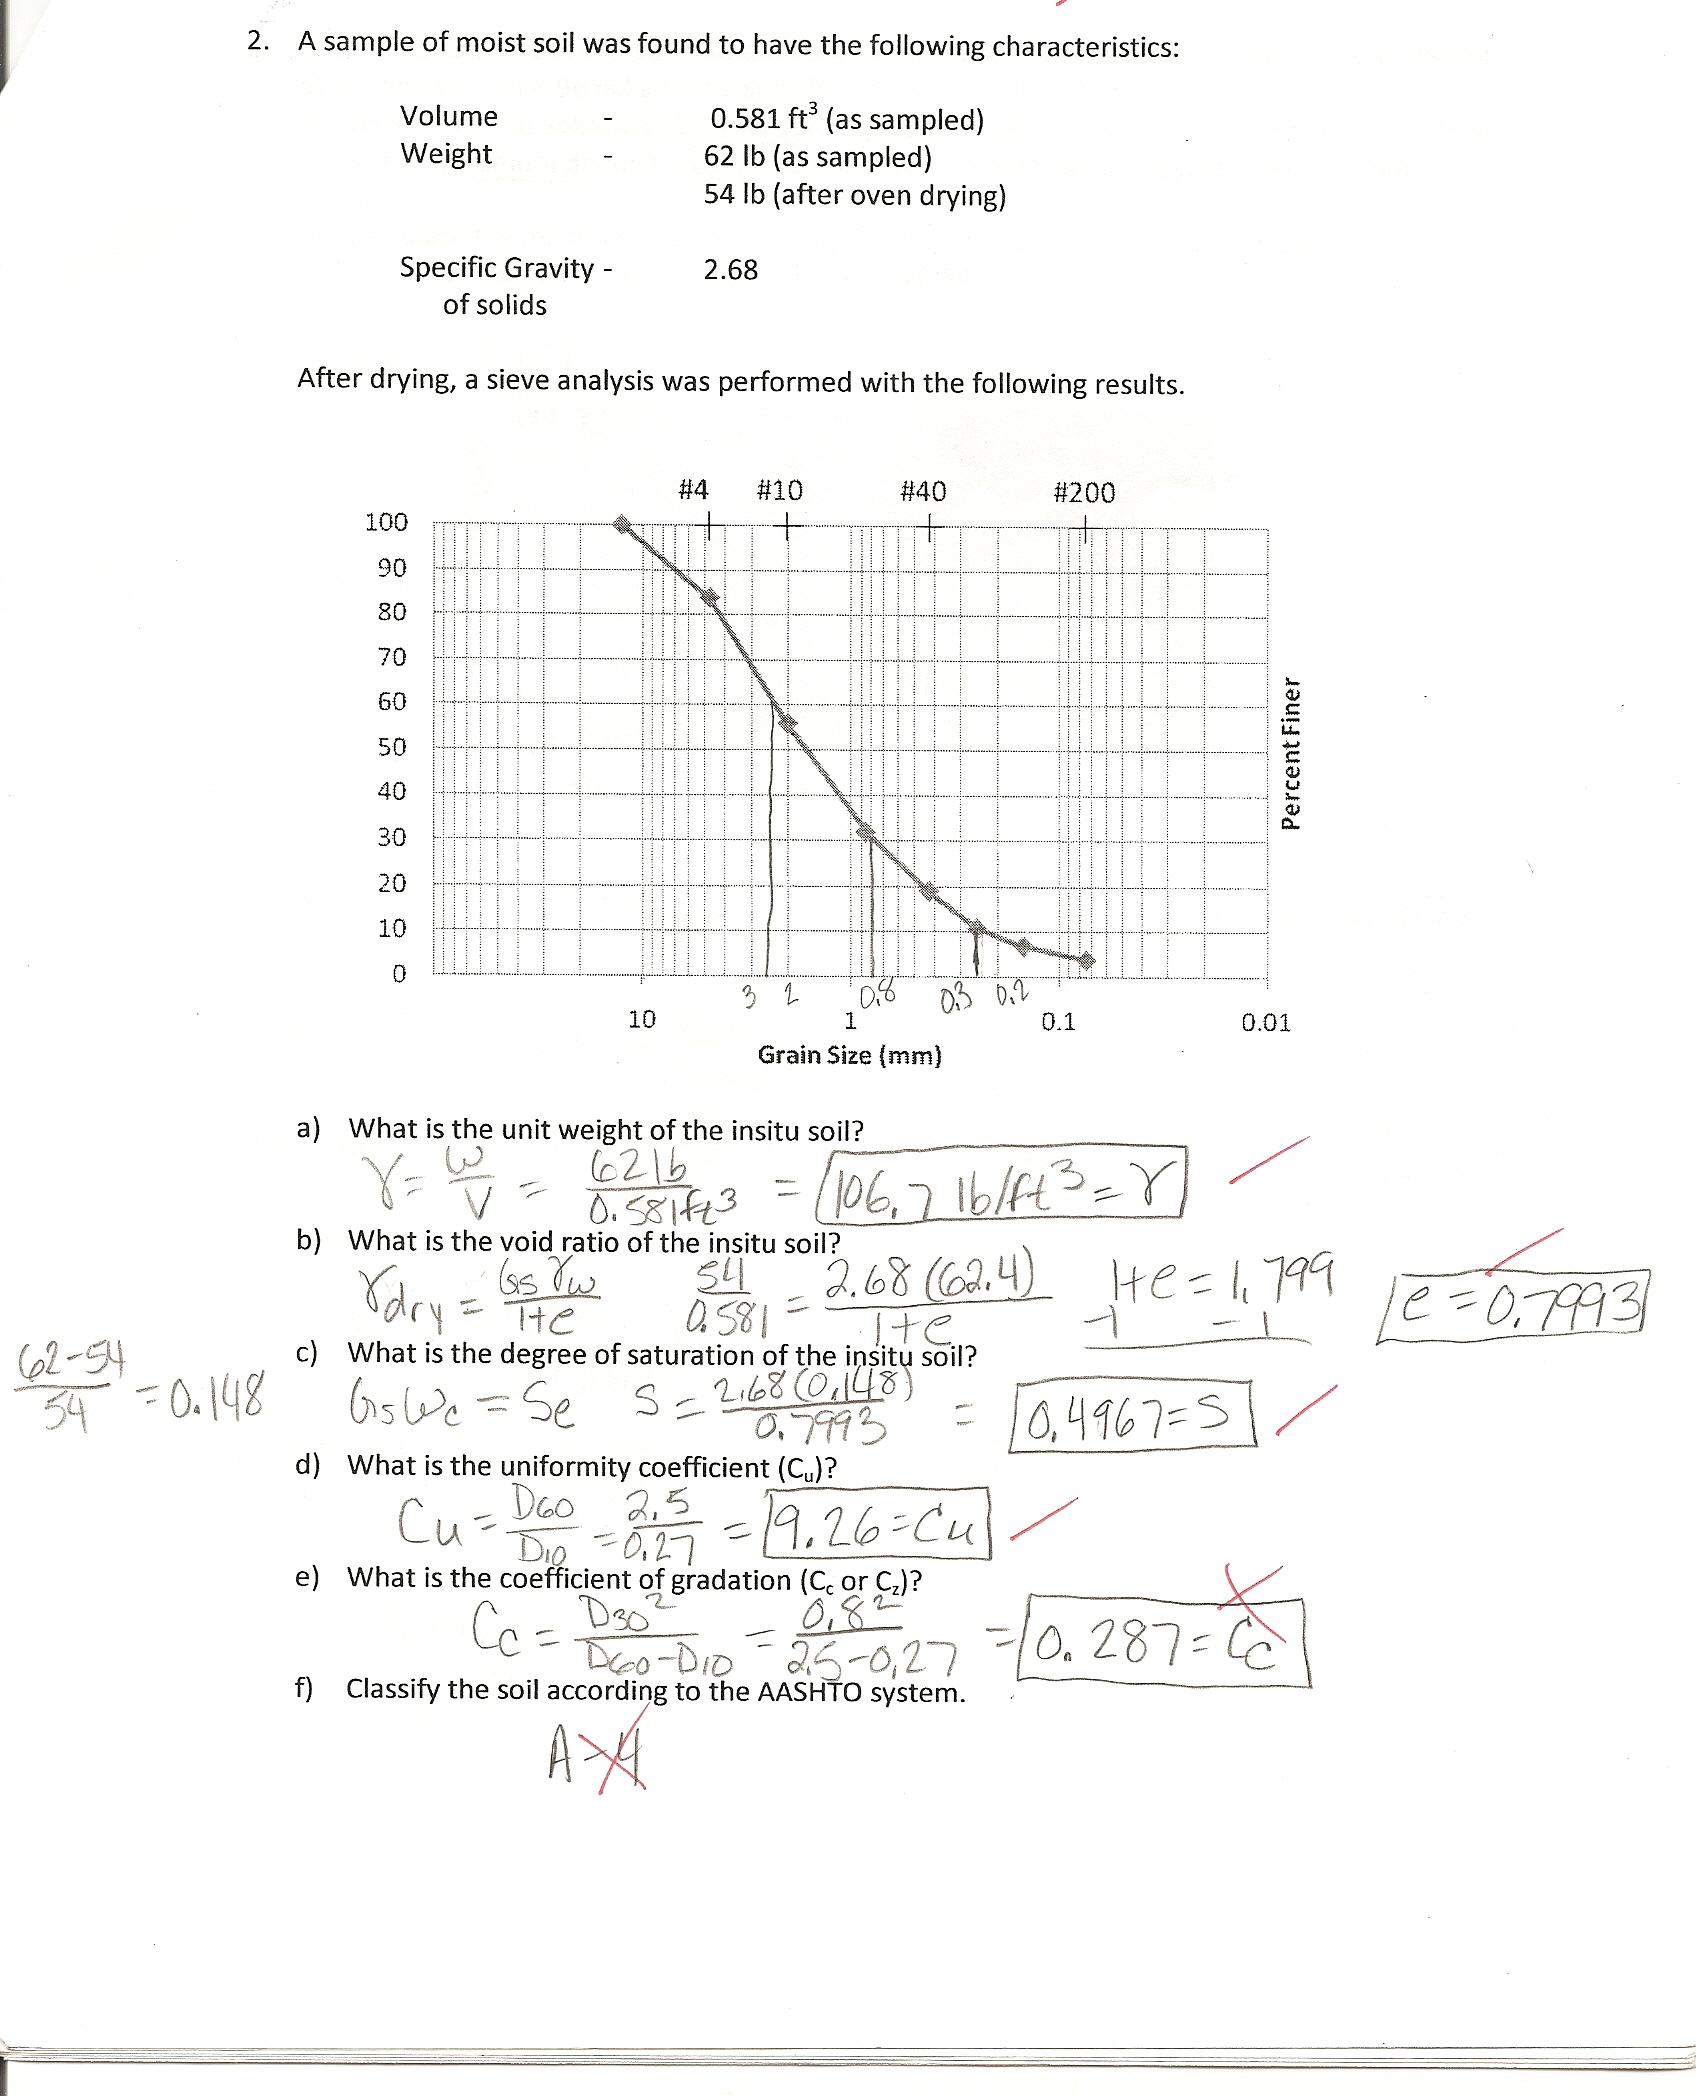 2. A sample of moist soil was found to have the following characteristics:
Volume - 0.581 ft³ (as sampled)
Weight - 62 lb (as sampled)
54 lb (after oven drying)
Specific Gravity - 2.68
of solids
After drying, a sieve analysis was performed with the following results.
#4 #10 #40 #200
100
90
80
70
60
50
40
30
20
10
0
Percent Finer
3 2 0.8 0.3 0.2
10 1 0.1 0.01
Grain Size (mm)
a) What is the unit weight of the insitu soil?
γ = W/V = 62 lb/0.581 ft³ = 106.7 lb/ft³ = γ
b) What is the void ratio of the insitu soil?
γdry = Gsγw/1+e 54/0.581 = 2.68(62.4)/1+e 1+e = 1.799 e = 0.7993
-1 -1
c) What is the degree of saturation of the insitu soil?
62-54/54 = 0.148 GsWc = Se S = 2.68(0.148)/0.7993 = 0.4967 = S
d) What is the uniformity coefficient (Cu)?
Cu = D60/D10 = 2.5/0.27 = 9.26 = Cu
e) What is the coefficient of gradation (Cc or Cz)?
Cc = D30²/D60-D10 = 0.8²/2.5-0.27 = 0.287 = Cc
f) Classify the soil according to the AASHTO system.
A-4